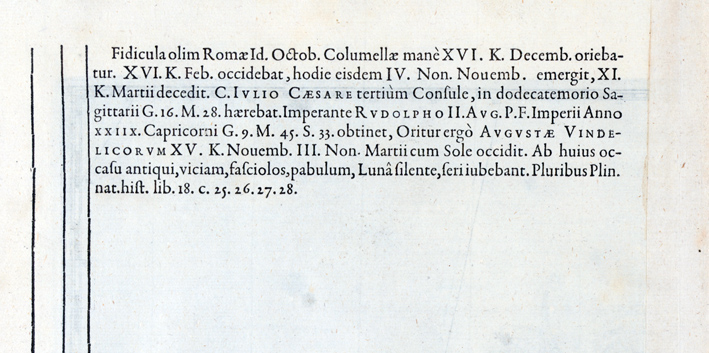 Fidicula olim Romæ Id. Octob. Columellæ manè XVI. K. Decemb. orieba-
tur. XVI. K. Feb. occidebat, hodie eisdem IV. Non. Nouemb. emergit, XI.
K. Martii decedit. C. IVLIO CÆSARE tertiùm Consule, in dodecatemorio Sa-
gittarii G. 16. M. 28. hærebat. Imperante RVDOLPHO II. AVG. P. F. Imperii Anno
XXIIX. Capricorni G. 9. M. 45. S. 33. obtinet, Oritur ergò AVGVSTÆ VINDE-
LICORVM XV. K. Nouemb. III. Non. Martii cum Sole occidit. Ab huius oc-
casu antiqui, viciam, fasciolos, pabulum, Lunâ silente, seri iubebant. Pluribus Plin.
nat. hist. lib. 18. c. 25. 26. 27. 28.